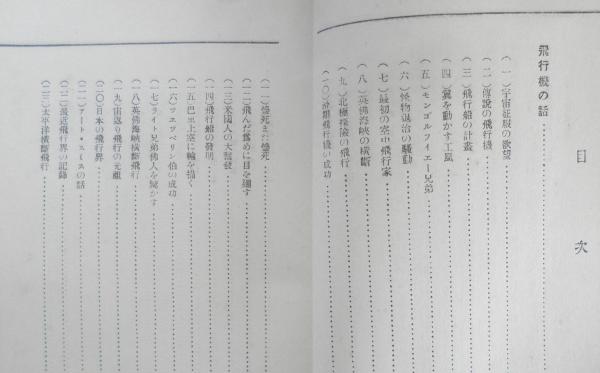 目次
飛行機の話
(一)宇宙征服の欲望
(二)傳說の飛行機
(三)飛行船の計畫
(四)翼を動かす工風
(五)モンゴルフイエー兄弟
(六)怪物退治の騷動
(七)最初の空中飛行家
(八)英佛海峽の橫斷
(九)北極探險の飛行
(一〇)滑翔飛行機の成功
(一一)慘死また慘死
(一二)飛んだ爲めに目を廻す
(一三)米國人の大奮發
(一四)飛行船の發明
(一五)巴里上空に輪を描く
(一六)ツエツペリン伯の成功
(一七)ライト兄弟佛人を驚かす
(一八)英佛海峽橫斷飛行
(一九)宙返り飛行の元祖
(二〇)日本の飛行界
(二一)アート・スミスの話
(二二)最近飛行界の記錄
(二三)太平洋橫斷飛行